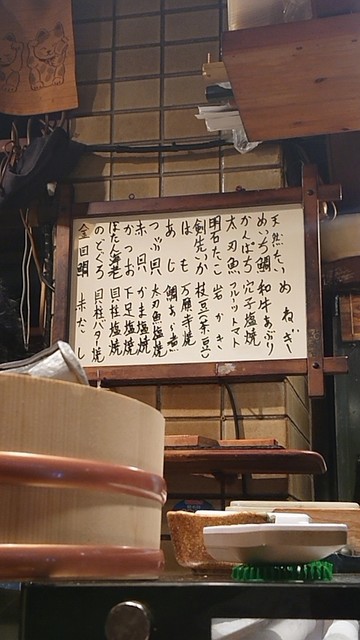 天然たい めねぎ
めいち鯛 和牛あぶり
かんぱち 穴子塩焼
太刀魚 フルーツトマト
明石たこ 岩がき
剣先いか 枝豆(茶豆)
はも 万願寺焼
あじ 鯛あら煮
つぶ貝 太刀魚塩焼
赤貝 かま塩焼
かつお 下足塩焼
ぼたん海老 貝柱塩焼
のどぐろ 貝柱バター焼
金目鯛 赤だし